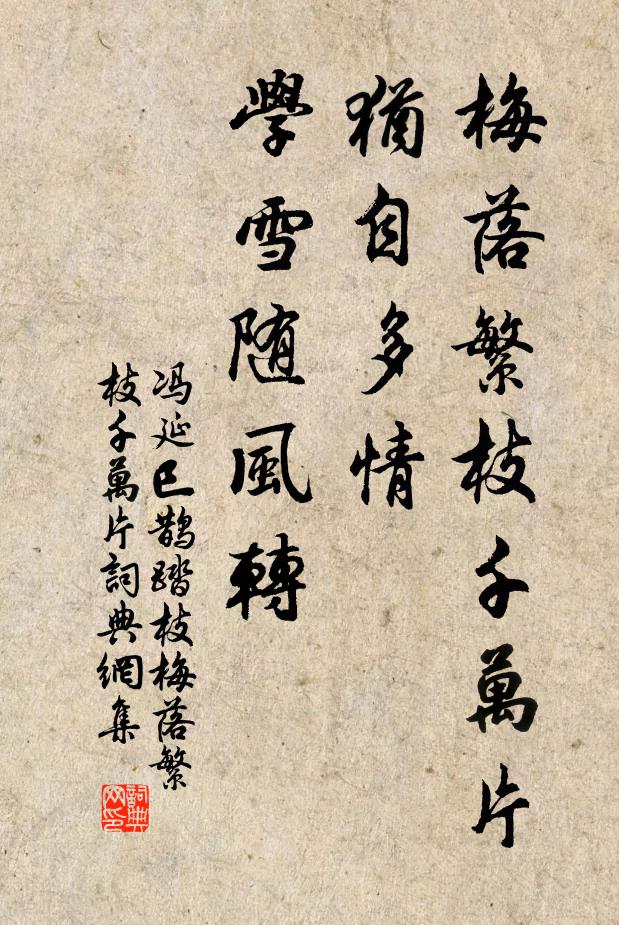 梅落繁枝千萬片
猶自多情
學雪随風轉
冯延巳鹊踏枝梅落繁
枝千萬片詞典網集
詞典网印